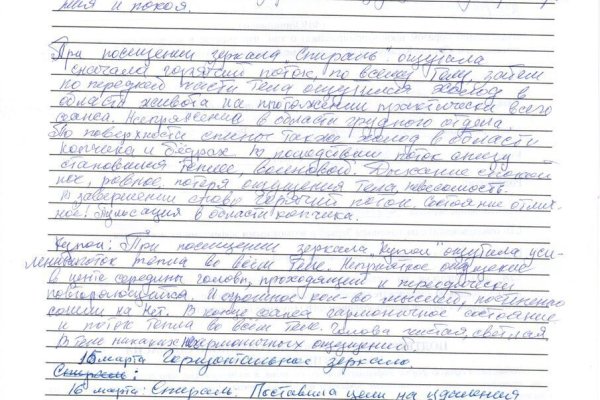 ния и покоя.
При посещении зеркала „Спираль" ощутила
сначала горячий поток, по всему телу, затем
по передней части тела ощущался холод в
области живота на протяжении практически всего
сеанса. Напряжение в области грудного отдела.
По поверхности спины также холод в области
копчика и бёдрах. В последствии поток снизу
становился теплее, волновой. Дыхание спокой
ное, ровное, потеря ощущения тела, невесомость.
В завершении снова горячий поток. Состояние отлич-
ное. Пульсация в области копчика.
Купол: При посещении зеркала „Купол" ощутила уси-
ленный поток тепла во всем теле. Неприятное ощущение
в центре середины головы, проходящий и переодически
повторяющийся. И огромное кол-во мыслей, постепенно
сошли на нет. В конце сеанса гармоничное состояние
и поток тепла во всем теле. Голова чистая, светлая,
в теле никаких негармоничных ощущений.
15 марта Горизонтальное зеркало.
Спираль:
16 марта: Спираль. Поставила цели на удаления